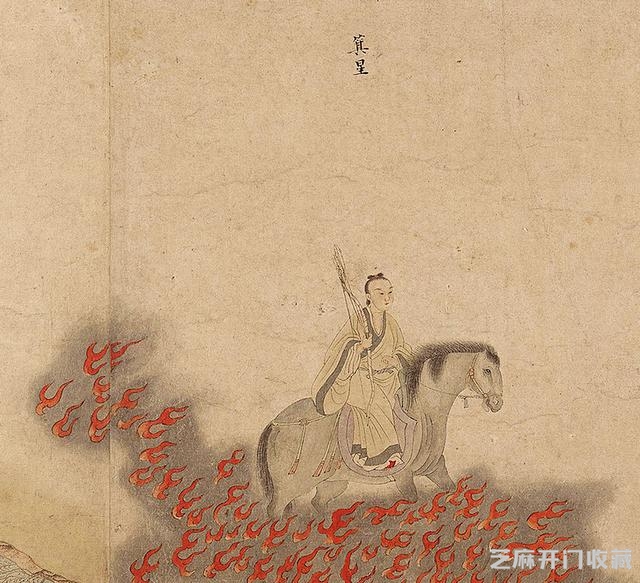 箕星
芝麻开门收藏